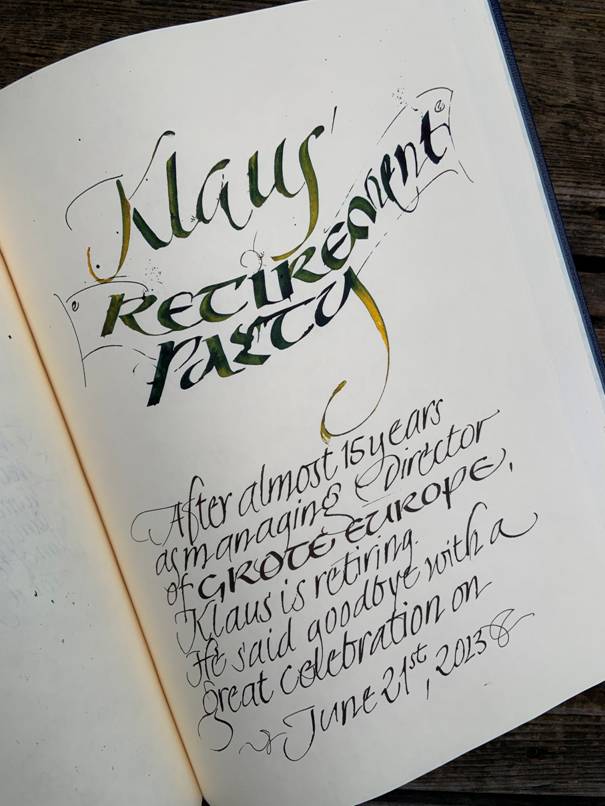 Klaus'
RETIREMENT
PARTY
After almost 15 years
as managing Director
of GROTE EUROPE,
Klaus is retiring.
He said goodbye with a
great celebration on
June 21st, 2013